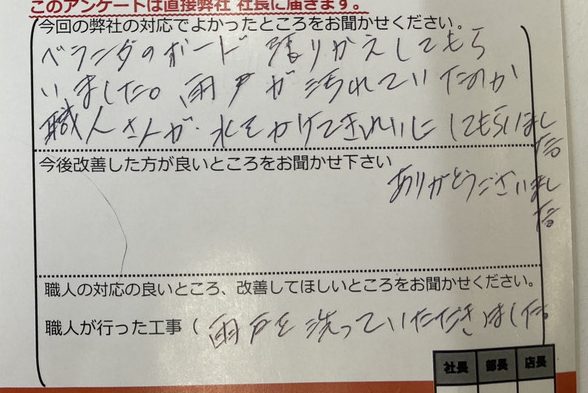 このアンケートは直接弊社 社長に届きます。
今回の弊社の対応でよかったところをお聞かせください。
ベランダのボード 張りかえしてもら
いました。雨戸が汚れていたのが
職人さんが、水をかけてきれいにしてもらいました。
今後改善した方が良いところをお聞かせ下さい
ありがとうございました。
職人の対応の良いところ、改善してほしいところをお聞かせください。
職人が行った工事 ( 雨戸を洗っていただきました。
社長 部長 店長